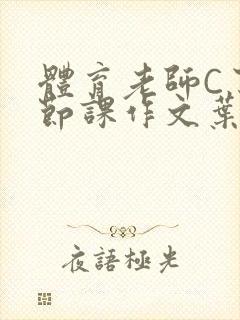 體育老師C
節課作文葉
夜語極光